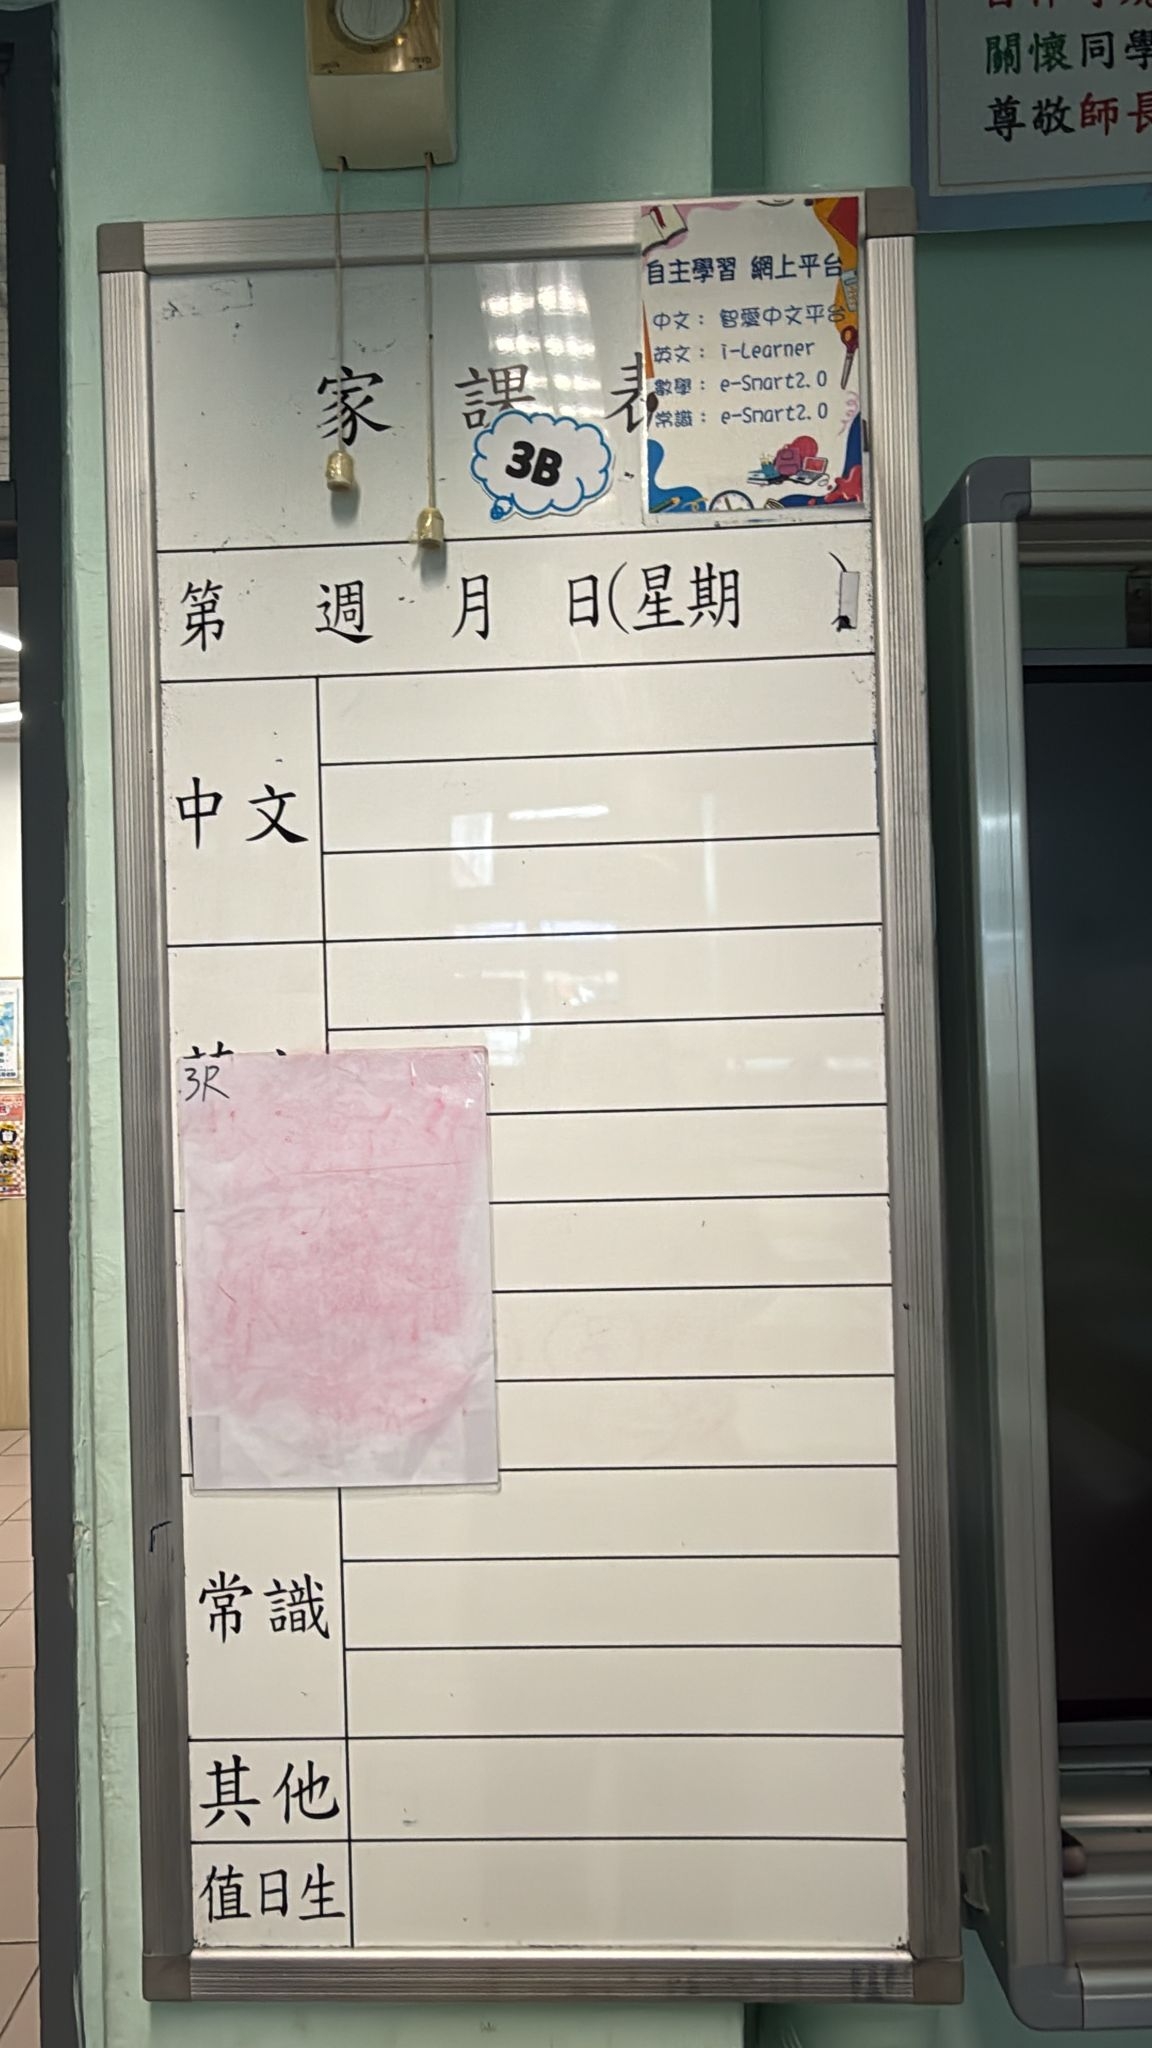 關懷同學
尊敬師長
自主學習 網上平台
中文： 智愛中文平台
英文： i-Learner
數學： e-Smart2.0
常識： e-Smart2.0
家 課 表
3B
第 週 月 日(星期 )
中文
3R
常識
其他
值日生